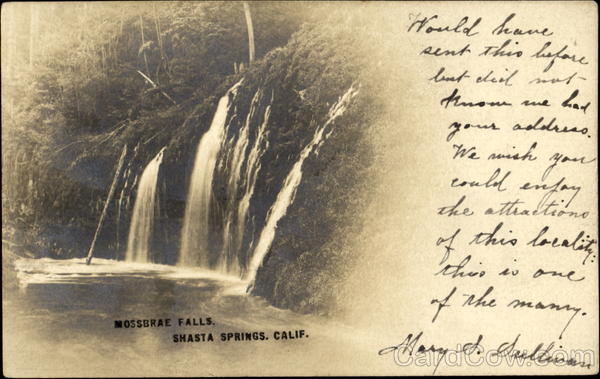 Would have
sent this before
but did not
know we had
your address.
We wish you
could enjoy
the attractions
of this locality:
this is one
of the many.
Mary S. Sullivan
MOSSBRAE FALLS.
SHASTA SPRINGS. CALIF.
CardCow.com